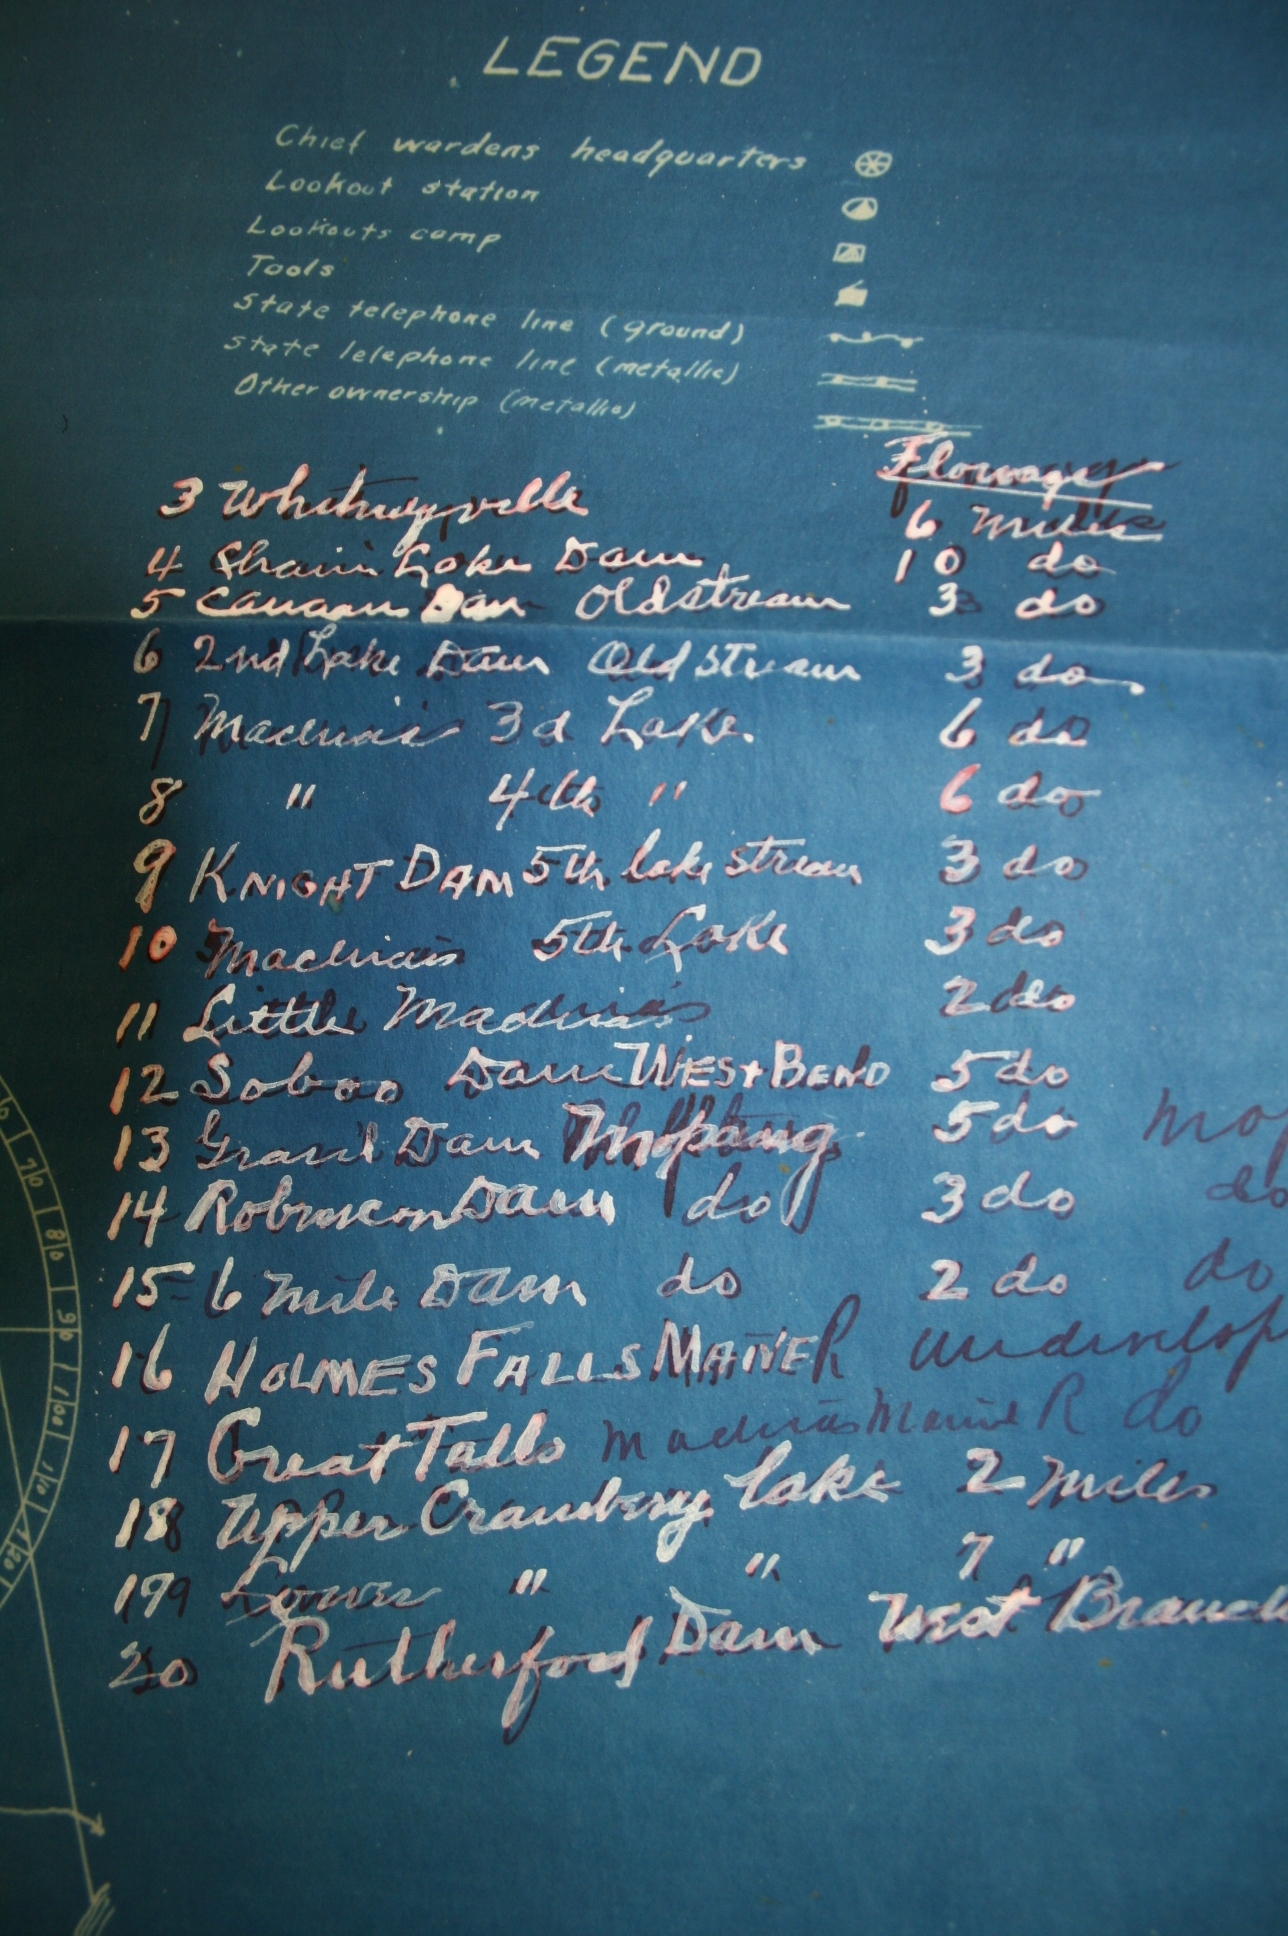 LEGEND
Chief wardens headquarters
Lookout station
Lookouts camp
Tools
State telephone line (ground)
State telephone line (metallic)
Other ownership (metallic)
Flowage
3 Whitneyville 6 miles
4 Chain Lake Dam 10 do
5 Canaan Dam Oldstream 3 do
6 2nd Lake Dam Old Stream 3 do
7 Machias 3d Lake 6 do
8 " 4th " 6 do
9 KNIGHT DAM 5th lake stream 3 do
10 Machias 5th Lake 3 do
11 Little Machias 2 do
12 Soboo Dam WEST BEND 5 do
13 Dam Mopang 5 do
14 Robinson Dam do 3 do do
15 6 mile Dam do 2 do do
16 HOLMES FALLS MAINE R
17 Great Falls Machias Maine R do
18 Upper Cranberry Lake 2 miles
19 Lower " " 7 "
20 Rutherford Dam West Branch
70
80
90
100
110
120